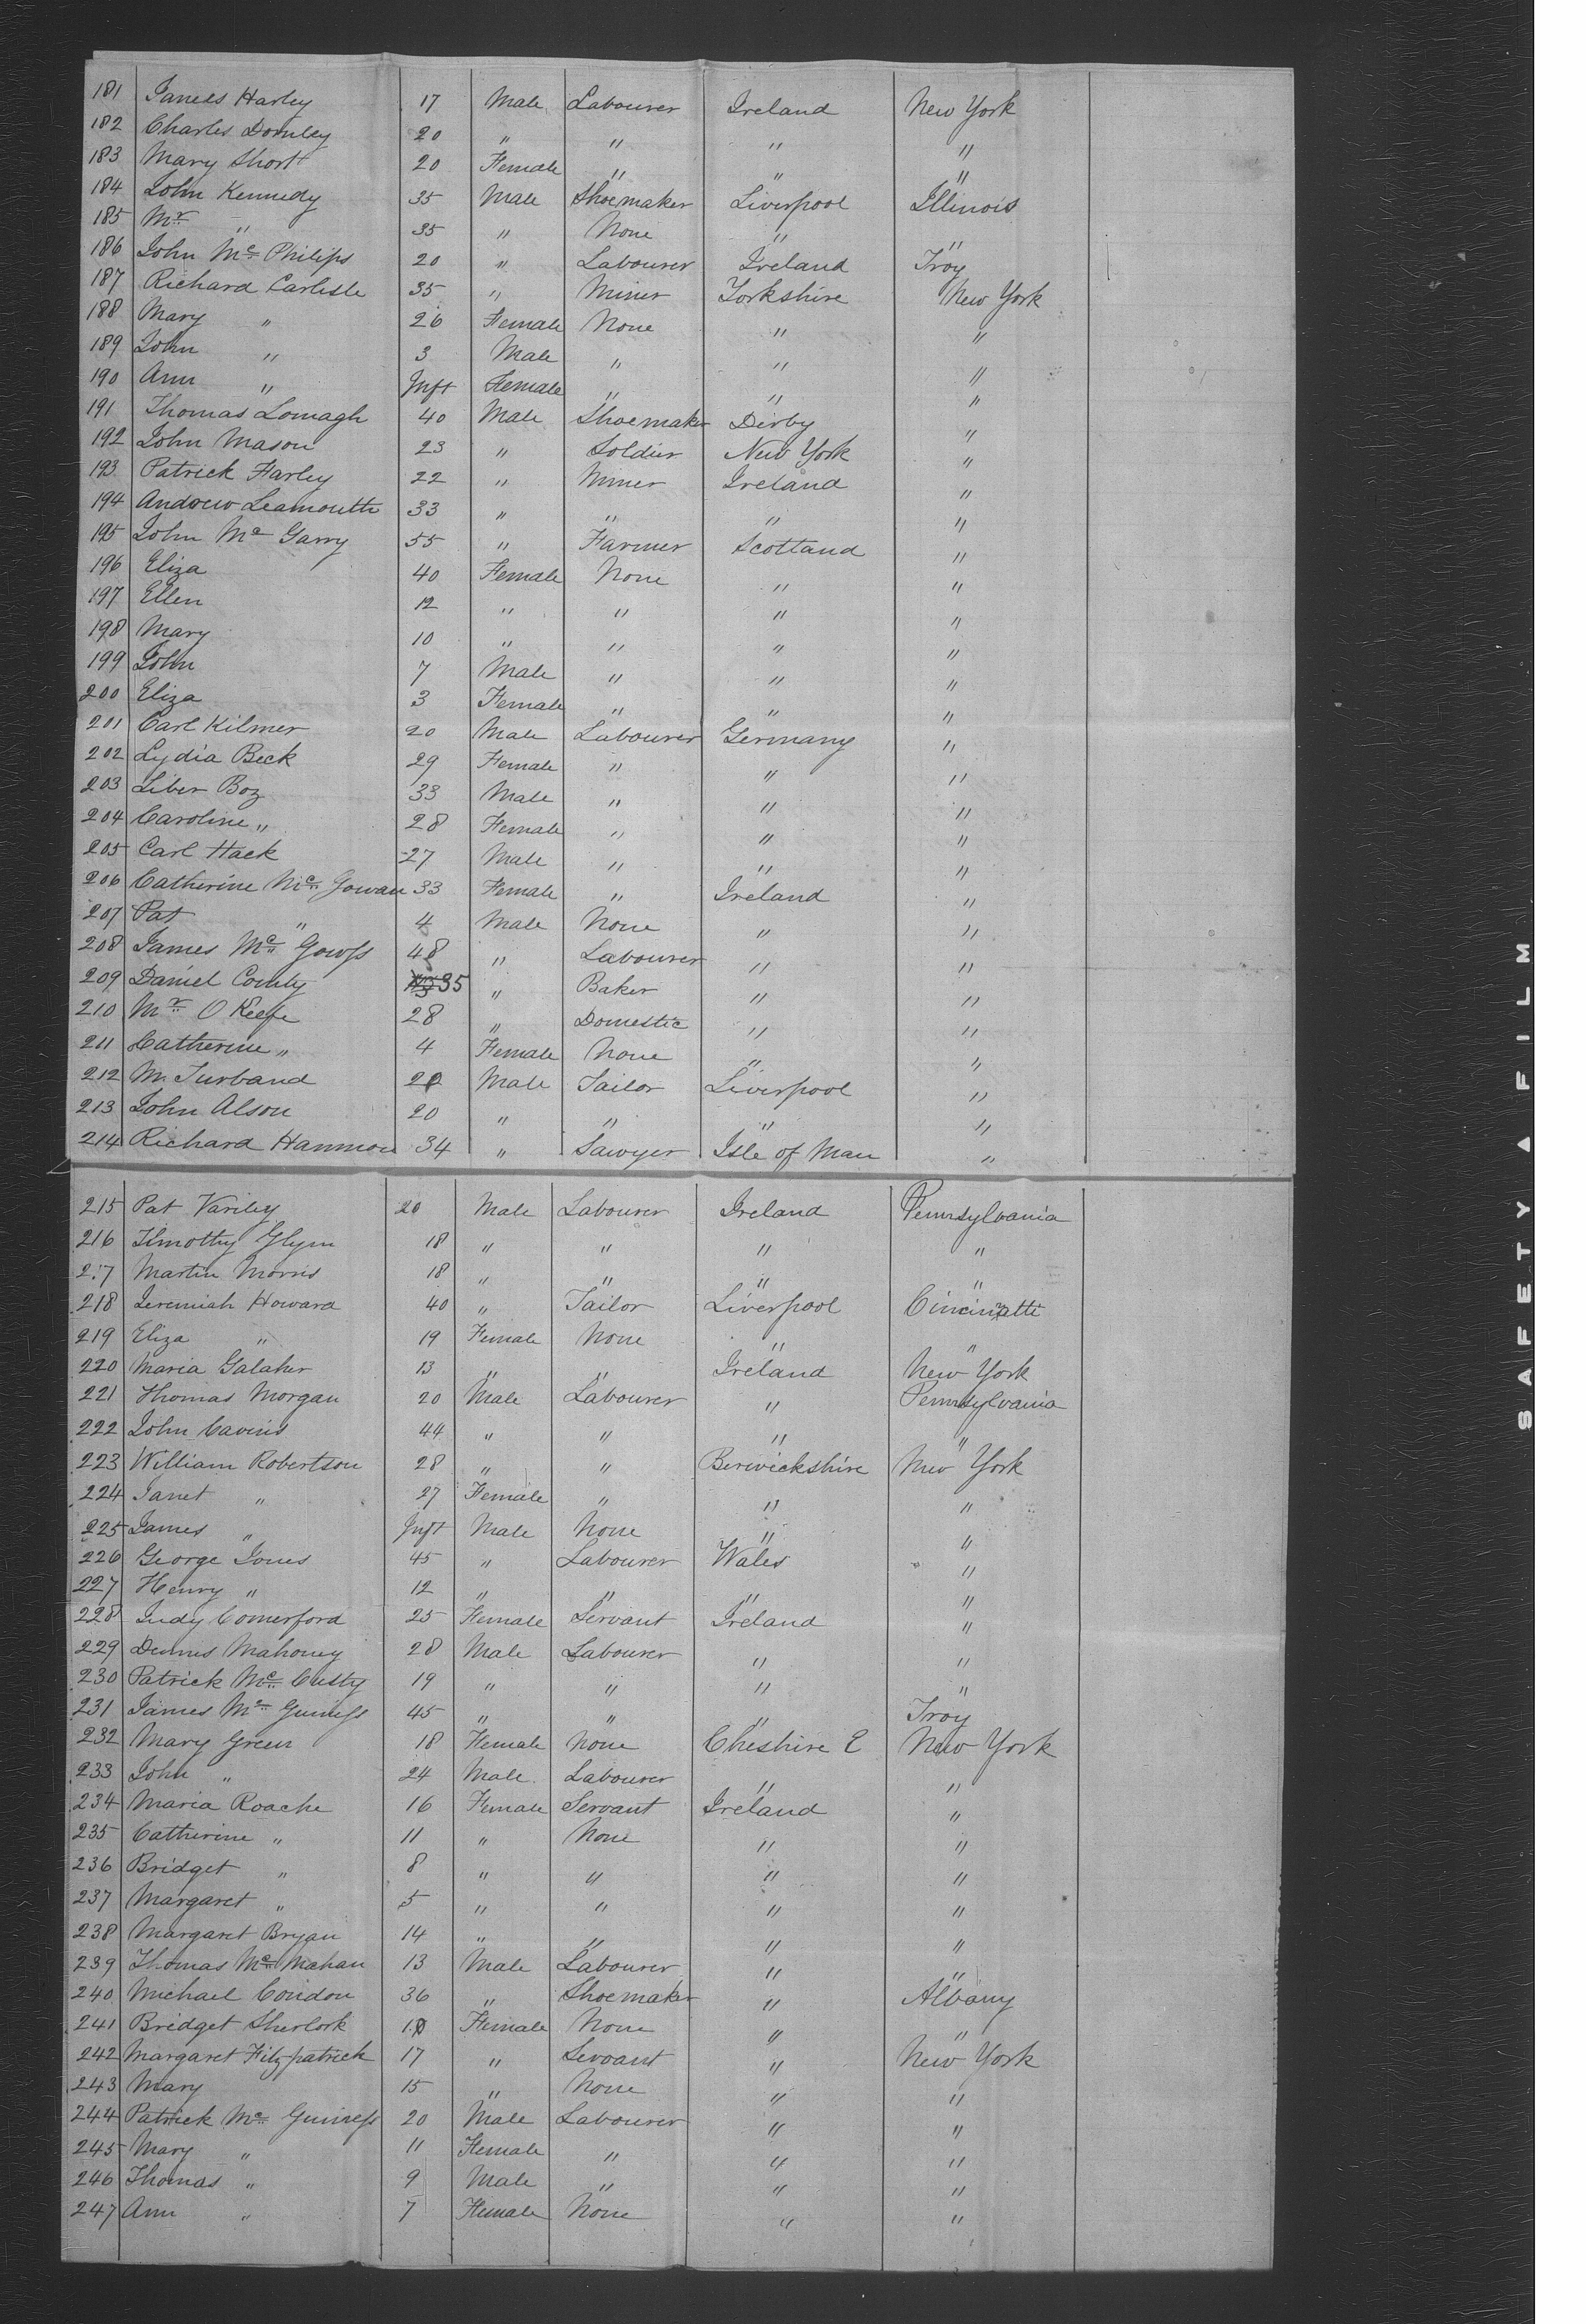 181 James Harley 17 Male Labourer Ireland New York
182 Charles Dornley 20 " " " "
183 Mary Short 20 Female " " "
184 John Kennedy 35 Male Shoemaker Liverpool Illinois
185 Mr " 35 " None " "
186 John Mc Philips 20 " Labourer Ireland Troy
187 Richard Carlisle 35 " Miner Yorkshire New York
188 Mary " 26 Female None " "
189 John " 3 Male " " "
190 Ann " Inft Female " " "
191 Thomas Lomagh 40 Male Shoemaker Dirby "
192 John Mason 23 " Soldier New York "
193 Patrick Farley 22 " Miner Ireland "
194 Andrew Leamoutte 33 " " " "
195 John Mc Garry 55 " Farmer Scotland "
196 Eliza 40 Female None " "
197 Ellen 12 " " " "
198 Mary 10 " " " "
199 John 7 Male " " "
200 Eliza 3 Female " " "
201 Carl Kilmer 20 Male Labourer Germany "
202 Lydia Beck 29 Female " " "
203 Liber Boz 33 Male " " "
204 Caroline " 28 Female " " "
205 Carl Hack 27 Male " " "
206 Catherine Mc Gowan 33 Female " Ireland "
207 Pat " 4 Male None " "
208 James Mc Gowss 48 " Labourer " "
209 Daniel 35 " Baker " "
210 Mr O Keefe 28 " Domestic " "
211 Catherine " 4 Female None " "
212 M. Turband Male Tailor Liverpool "
213 John Alson 20 " " " "
214 Richard Hanmon 34 " Sawyer Isle of Man "
215 Pat Variley 20 Male Labourer Ireland Pennsylvania
216 Timothy Glynn 18 " " " "
217 Martin Morris 18 " " " "
218 Jeremiah Howard 40 " Tailor Liverpool Cincinatti
219 Eliza " 19 Female None " "
220 Maria Galaher 13 " " Ireland New York
221 Thomas Morgan 20 Male Labourer " Pennsylvania
222 John Cavins 44 " " " "
223 William Robertson 28 " " Berwickshire New York
224 Janet " 27 Female " " "
225 James " Inft Male None " "
226 George Jones 45 " Labourer Wales "
227 Henry " 12 " " " "
228 Judy Comerford 25 Female Servant Ireland "
229 Dennis Mahoney 28 Male Labourer " "
230 Patrick Mc Custy 19 " " " "
231 James Mc Guiness 45 " " " Troy
232 Mary Green 18 Female None Cheshire E New York
233 John " 24 Male Labourer " "
234 Maria Roache 16 Female Servant Ireland "
235 Catherine " 11 " None " "
236 Bridget " 8 " " " "
237 Margaret " 5 " " " "
238 Margaret Bryan 14 " " " "
239 Thomas Mc Mahan 13 Male Labourer " "
240 Michael Condon 36 " Shoemaker " Albany
241 Bridget Sherlock Female None " "
242 Margaret Fitzpatrick 17 " Servant " New York
243 Mary 15 " None " "
244 Patrick Mc Guiness 20 Male Labourer " "
245 Mary " 11 Female " " "
246 Thomas " 9 Male " " "
247 Ann " 7 Female None " "
SAFETY A FILM